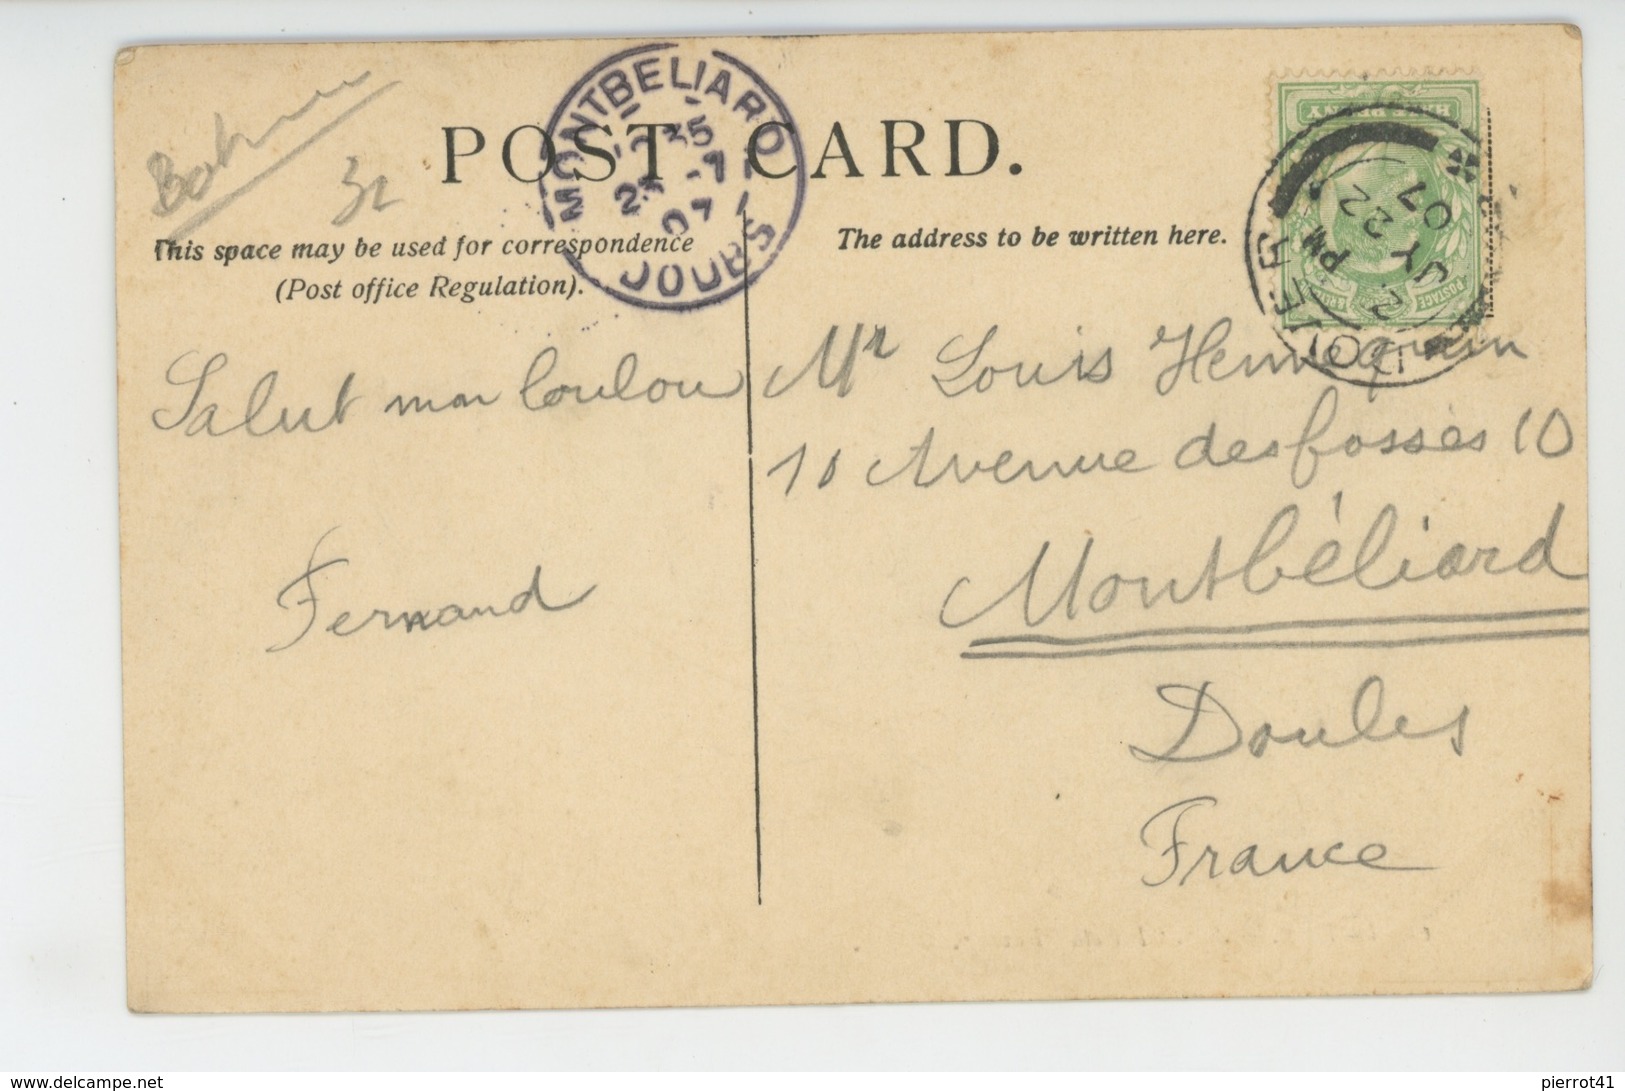 POST CARD.
32
MONTBELIARD
DOUBS
This space may be used for correspondence
(Post office Regulation).
The address to be written here.
DOVER
PM
JY 22
07
POSTAGE
Salut mon Loulou
Fernand
Mr Louis Hennequin
10 Avenue des fossés 10
Montbéliard
Doubs
France
www.delcampe.net
pierrot41